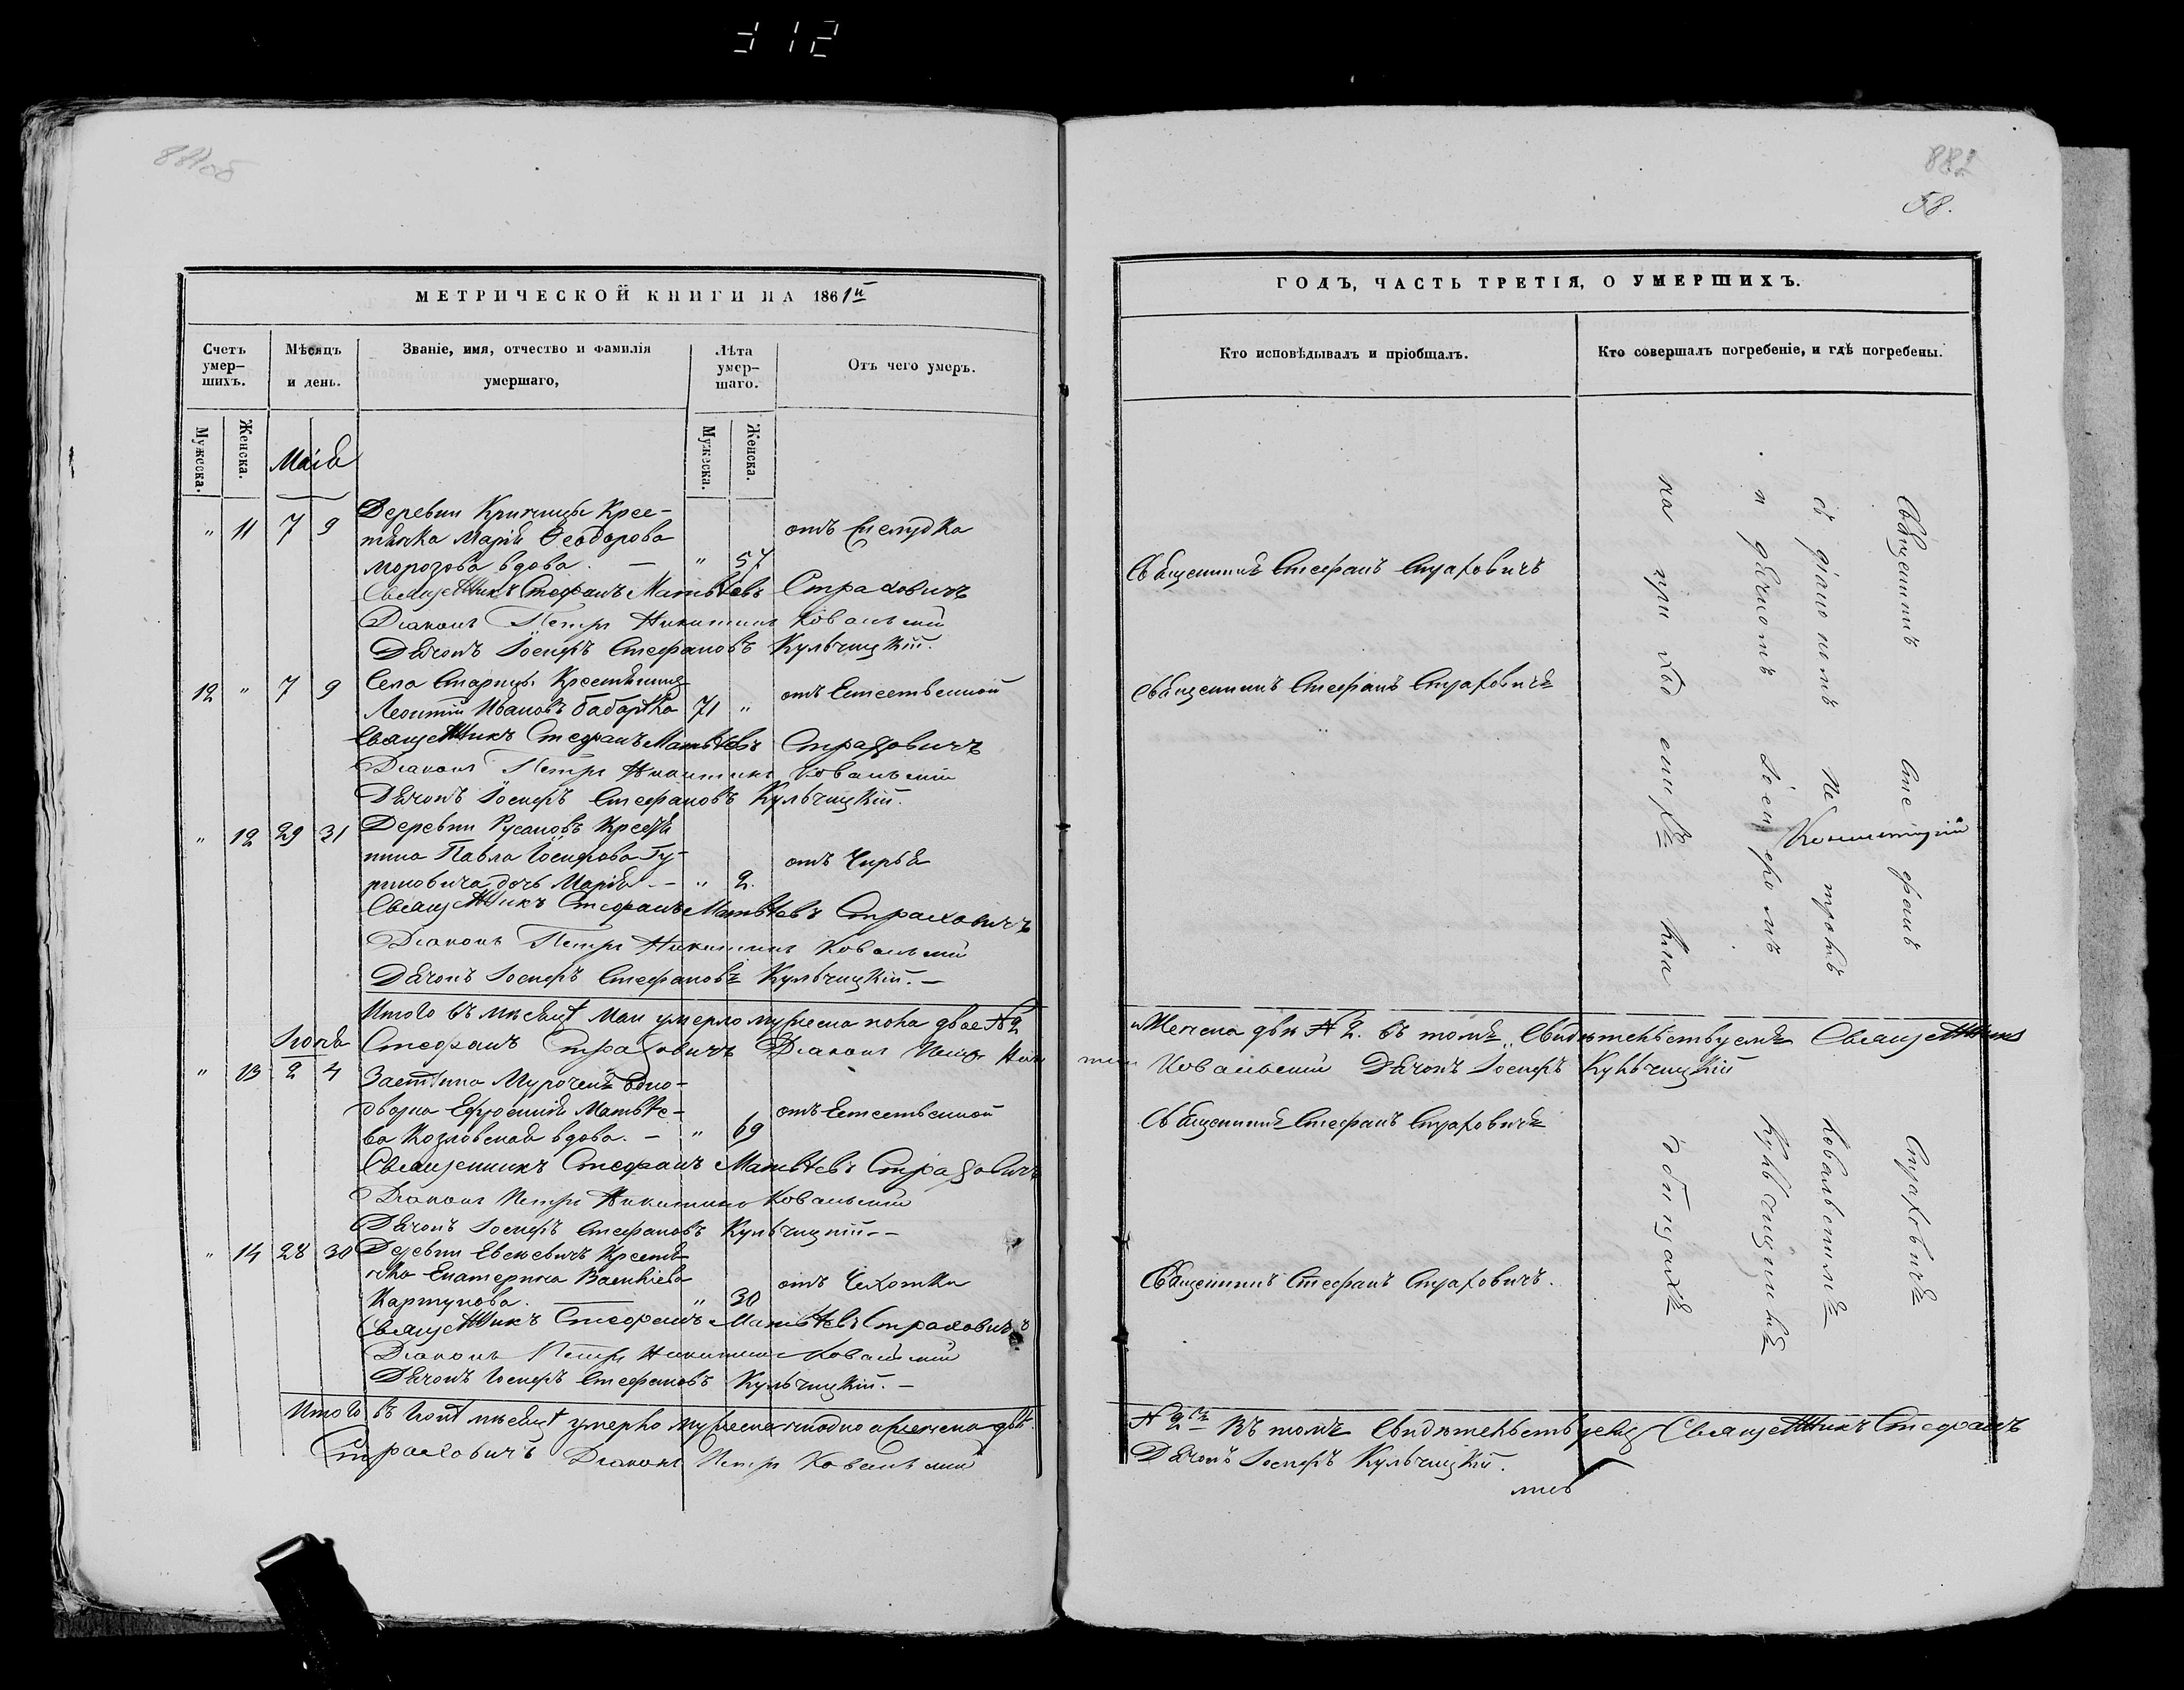 312
881об
МЕТРИЧЕСКОЙ КНИГИ НА 1861й
Счетъ умер-шихъ.
Мѣсяцъ и день.
Званіе, имя, отчество и фамилія умершаго,
Лѣта умер-шаго.
Отъ чего умеръ.
Мужеска.
Женска.
Маія
Мужеска.
Женска.
Деревни Криницы Крес-
" 11 7 9 тьянка Марія Ѳеодорова отъ Желудка
Морозова вдова. — " 57
Священникъ Стефанъ Матвѣевъ Страховичъ
Діаконъ Петръ Никитинъ Ковальскій
Дьячокъ Іосифъ Стефановъ Кульчицкій.
12 " 7 9 Села Старицы Крестьянинъ отъ Естественной
Леонтій Ивановъ Бабарыка 71 "
Священникъ Стефанъ Матвѣевъ Страховичъ
Діаконъ Петръ Никитинъ Ковальскій
Дьячокъ Іосифъ Стефановъ Кульчицкій.
" 12 29 31 Деревни Русановъ Крестья
нина Павла Іосифова Гу- отъ Чирья
риновича дочь Марія. — " 2.
Священникъ Стефанъ Матвѣевъ Страховичъ
Діаконъ Петръ Никитинъ Ковальскій
Дьячокъ Іосифъ Стефановъ Кульчицкій. —
Итого въ мѣсяцѣ Маи умерло мужеска пола двое № 2
Іюня
Стефанъ Страховичъ Діаконъ Петръ Ники
" 13 2 4 Застѣнка Одно-
дворка Ефросинія Матвѣе- отъ Естественной
ва Козловская вдова. — " 69
Священникъ Стефанъ Матвѣевъ Страховичъ
Діаконъ Петръ Никитинъ Ковальскій
Дьячокъ Іосифъ Стефановъ Кульчицкій --
" 14 28 30 Деревни Евсевичъ Крестья
нка Екатерина Васильева отъ Чахотки
" 30
Священникъ Стефанъ Матвѣевъ Страховичъ
Діаконъ Петръ Никитинъ Ковальскій
Дьячокъ Іосифъ Стефановъ Кульчицкій. —
Итого въ Іюнѣ мѣсяцѣ умерло мужеска женска двѣ
Страховичъ Діаконъ Петръ Ковальскій
882
58.
ГОДЪ, ЧАСТЬ ТРЕТІЯ, О УМЕРШИХЪ.
Кто исповѣдывалъ и пріобщалъ.
Кто совершалъ погребеніе, и гдѣ погребены.
Священникъ Стефанъ Страховичъ
Священникъ Стефанъ Страховичъ
Священникъ Стефанъ Страховичъ
съ діакономъ Петромъ Ковальскимъ
и дьячкомъ Іосифомъ Кульчицкимъ
на приходскихъ кладбищахъ
Женска двѣ № 2. въ томъ Свидѣтельствуемъ Священникъ
тинъ Ковальскій Дьячокъ Іосифъ Кульчицкій
Священникъ Стефанъ Страховичъ
Священникъ Стефанъ Страховичъ.
№ 2 Въ томъ Свидѣтельствуемъ Священникъ Стефанъ
Дьячокъ Іосифъ Кульчицкій.